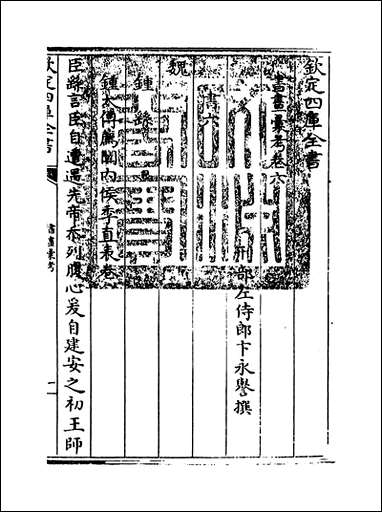 欽定四庫全書
書畫彙考卷六
刑部左侍郎卞永譽撰
書六
魏
鍾繇
鍾太傅薦關內侯季直表卷
臣繇言臣自遭遇先帝忝列腹心爰自建安之初王師
欽定四庫全書
書畫彙考